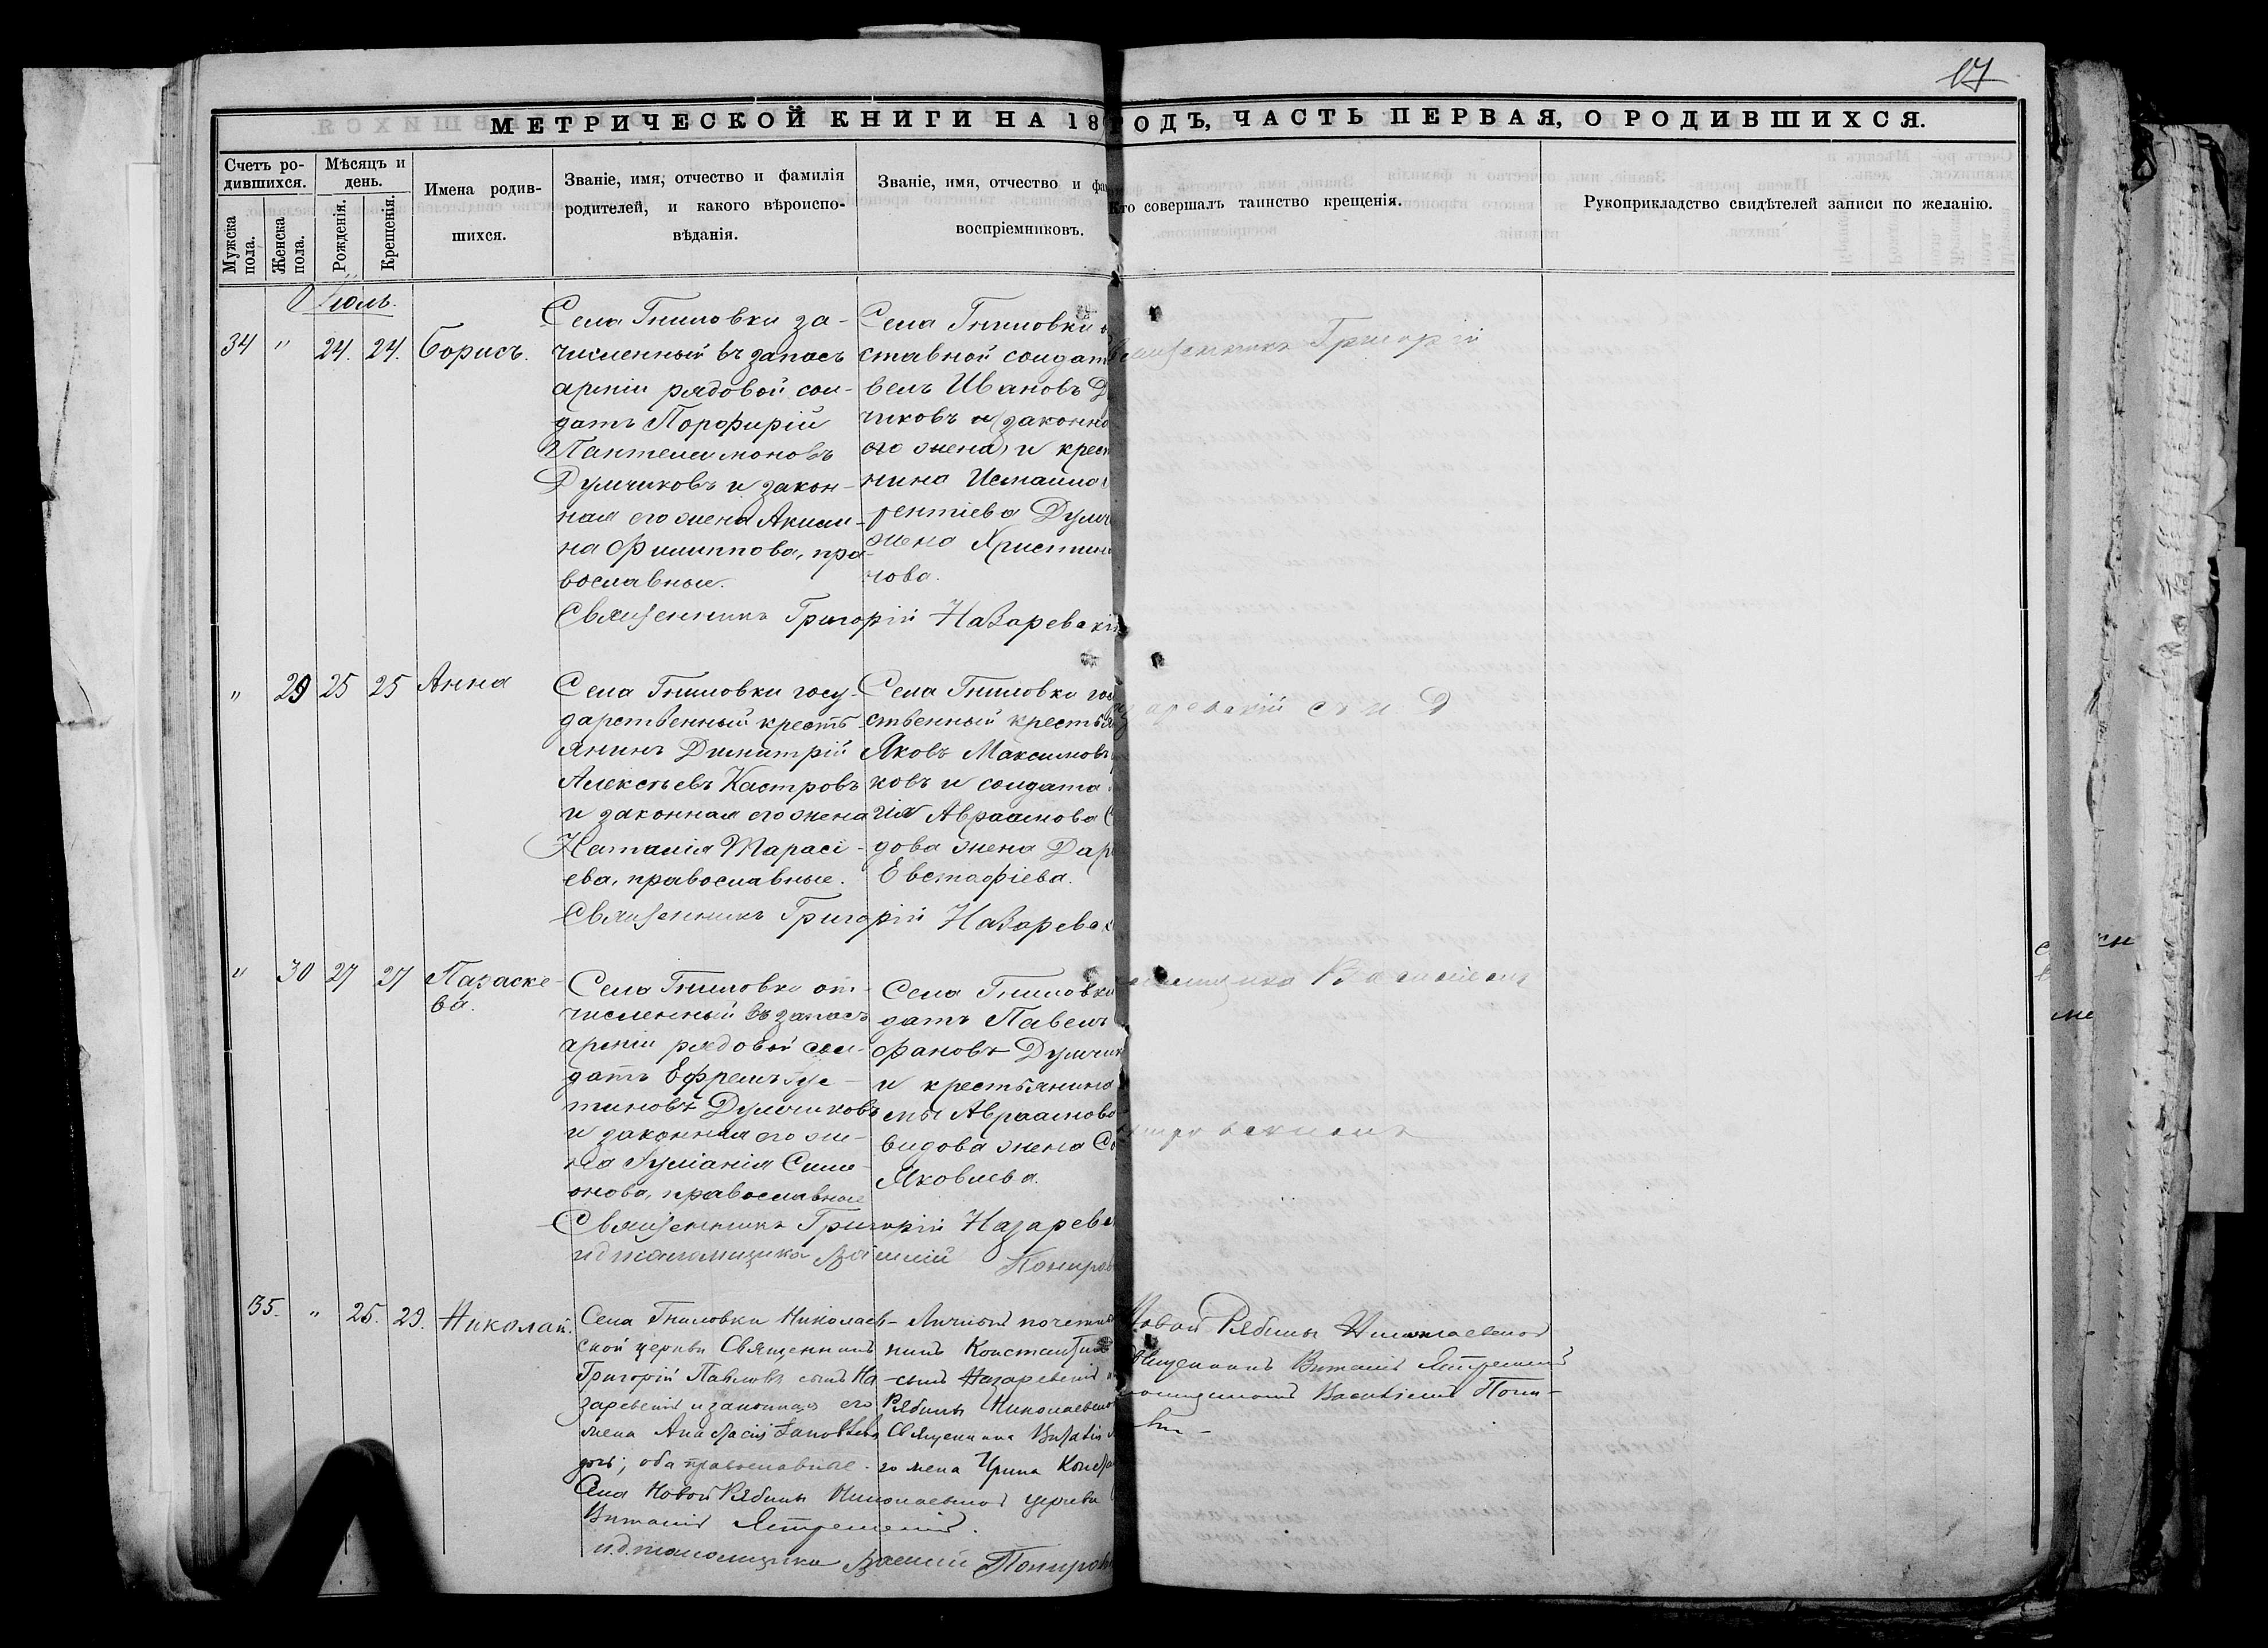 17
МЕТРИЧЕСКОЙ КНИГИ НА 18
ОДЪ, ЧАСТЬ ПЕРВАЯ, О РОДИВШИХСЯ.
Счетъ ро-
дившихся.
Мужска
пола.
Женска
пола.
Мѣсяцъ и
день.
Рожденія.
Крещенія.
Имена родив-
шихся.
Званіе, имя, отчество и фамилія
родителей, и какого вѣроиспо-
вѣданія.
Званіе, имя, отчество и фа
воспріемниковъ.
Кто совершалъ таинство крещенія.
Рукоприкладство свидѣтелей записи по желанію.
Іюль.
34 " 24. 24. Борисъ.
Села Гниловки за-
численный въ запасъ
арміи рядовой сол-
датъ Порфирій
Пантелеимоновъ
Думчиковъ и закон-
ная его жена Акили-
на Филиппова, пра-
вославные.
Села Гниловки
ставной солдат
велъ Ивановъ
чиковъ и законна
его жена, и крест
нина Исмаила
рентіева Думч
жена Христин
нова.
Священникъ Григорій Назаревскій
Священникъ Григорій
" 29 25 25 Анна
Села Гниловки госу-
дарственный кресть-
янинъ Димитрій
Алексѣевъ Кастровъ
и законная его жена
Наталія Тарасі-
ева, православные.
Села Гниловки гос
ственный крестья
Яковъ Максимовъ
ковъ и солдата
гія Авраамова
дова жена Дар
Евстафіева.
Священникъ Григорій Назаревск
" 30 27 27 Параске-
ва.
Села Гниловки от-
численный въ запасъ
арміи рядовой сол-
датъ Ефремъ
Думчиковъ
и законная его же-
на Іуліанія Симе-
онова, православные
Села Гниловки
датъ Павелъ
фановъ Думчик
и крестьянина
мы Авраамова
видова жена Со
Яковлева.
Священникъ Григорій Назаревс
и.д. псаломщика Василій Понировс
35. " 25. 29. Николай.
Села Гниловки Николаев-
ской церкви Священникъ
Григорій Павловъ сынъ На-
заревскій и законная его
жена Анастасія
дочь; оба православные.
Личный почетный
нинъ Константинъ
сынъ Назаревскій и
Рябины Николаевской
Священника Виталія
го жена Ирина Конста
Новой Рябины Николаевской
Священникъ Виталій Ястремскій
псаломщикомъ Василіемъ Пони-
Села Новой Рябины Николаевской церкви
Виталій Ястремскій.
и.д. псаломщика Василій Понировс